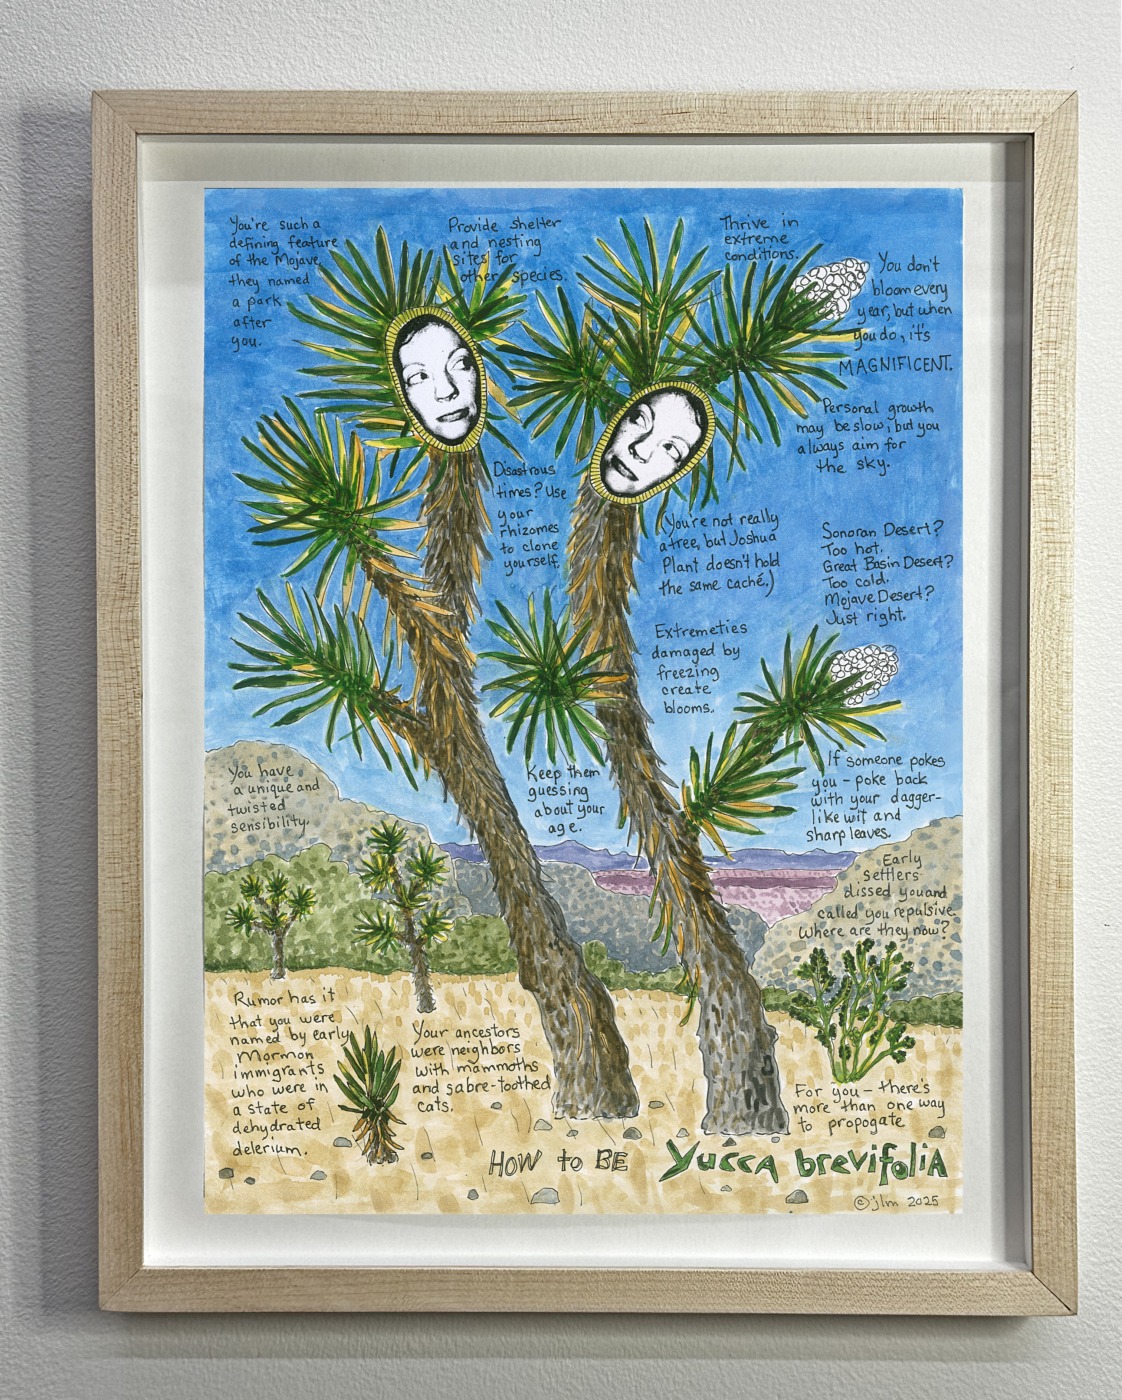 You're such a
defining feature
of the Mojave,
they named
a park
after
you.
Provide shelter
and nesting
sites for
other species.
Thrive in
extreme
conditions.
You don't
bloom every
year, but when
you do, it's
MAGNIFICENT.
Personal growth
may be slow, but you
always aim for
the sky.
Disastrous
times? Use
your
rhizomes
to clone
yourself.
(You're not really
a tree, but Joshua
Plant doesn't hold
the same caché.)
Sonoran Desert?
Too hot.
Great Basin Desert?
Too cold.
Mojave Desert?
Just right.
Extremeties
damaged by
freezing
create
blooms.
You have
a unique and
twisted
sensibility.
Keep them
guessing
about your
age.
If someone pokes
you - poke back
with your dagger-
like wit and
sharp leaves.
Early
settlers
dissed you and
called you repulsive.
Where are they now?
Rumor has it
that you were
named by early
Mormon
immigrants
who were in
a state of
dehydrated
delerium.
Your ancestors
were neighbors
with mammoths
and sabre-toothed
cats.
For you - there's
more than one way
to propogate
HOW to BE Yucca brevifolia
©jlm 2025